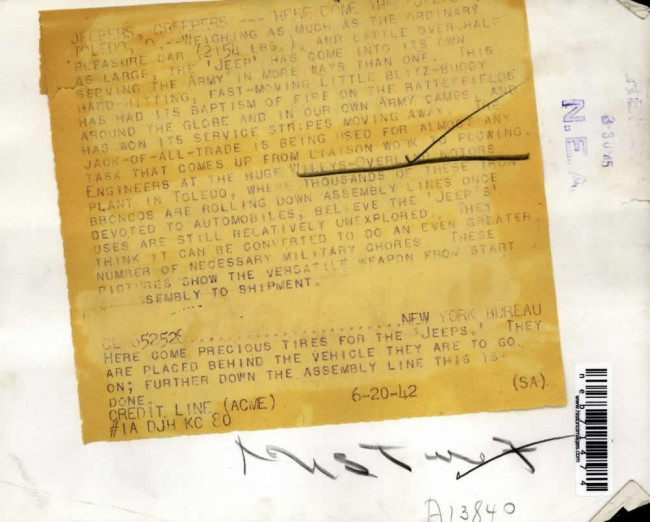 JEEPERS, CREEPERS --- HERE COME THE 'JEEPS'
TOLEDO, O.--WEIGHING AS MUCH AS THE ORDINARY
PLEASURE CAR (2154 LBS.), AND LITTLE OVER HALF
AS LARGE, THE 'JEEP' HAS COME INTO ITS OWN
SERVING THE ARMY IN MORE WAYS THAN ONE. THIS
HARD-HITTING, FAST-MOVING LITTLE BLITZ-BUGGY
HAS HAD ITS BAPTISM OF FIRE ON THE BATTLEFIELDS
AROUND THE GLOBE AND IN OUR OWN ARMY CAMPS, AND
HAS WON ITS SERVICE STRIPES MOVING AWAY. THE
JACK-OF-ALL-TRADE IS BEING USED FOR ALMOST ANY
TASK THAT COMES UP FROM LIAISON WORK TO PLOWING.
ENGINEERS AT THE HUGE WILLYS-OVERLAND MOTORS
PLANT IN TOLEDO, WHERE THOUSANDS OF THESE IRON
BRONCOS ARE ROLLING DOWN ASSEMBLY LINES ONCE
DEVOTED TO AUTOMOBILES, BELIEVE THE 'JEEP'S'
USES ARE STILL RELATIVELY UNEXPLORED. THEY
THINK IT CAN BE CONVERTED TO DO AN EVEN GREATER
NUMBER OF NECESSARY MILITARY CHORES. THESE
PICTURES SHOW THE VERSATILE WEAPON FROM START
SEMBLY TO SHIPMENT.
CL 652528 NEW YORK BUREAU
HERE COME PRECIOUS TIRES FOR THE 'JEEPS.' THEY
ARE PLACED BEHIND THE VEHICLE THEY ARE TO GO
ON; FURTHER DOWN THE ASSEMBLY LINE THIS IS
DONE.
CREDIT LINE (ACME) 6-20-42 (SA)
#1A DJH KC 80
N.E.A.
A13840
www.historicimages.com